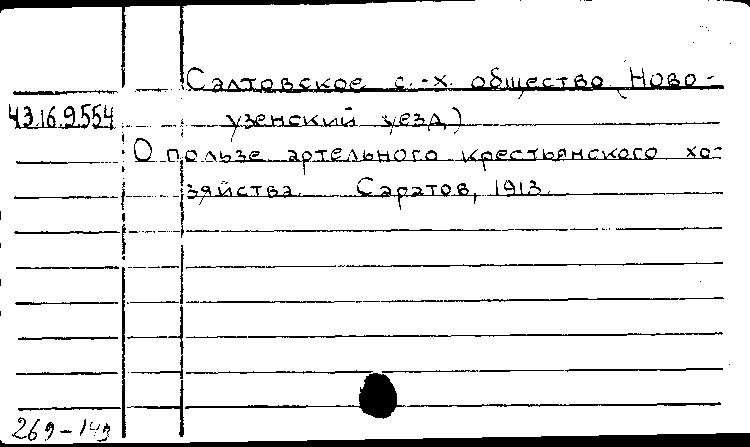 Салтовское с.-х. общество (Ново-
43.16.9.554 узенский уезд)
О пользе артельного крестьянского хо-
зяйства. Саратов, 1913.
269-149